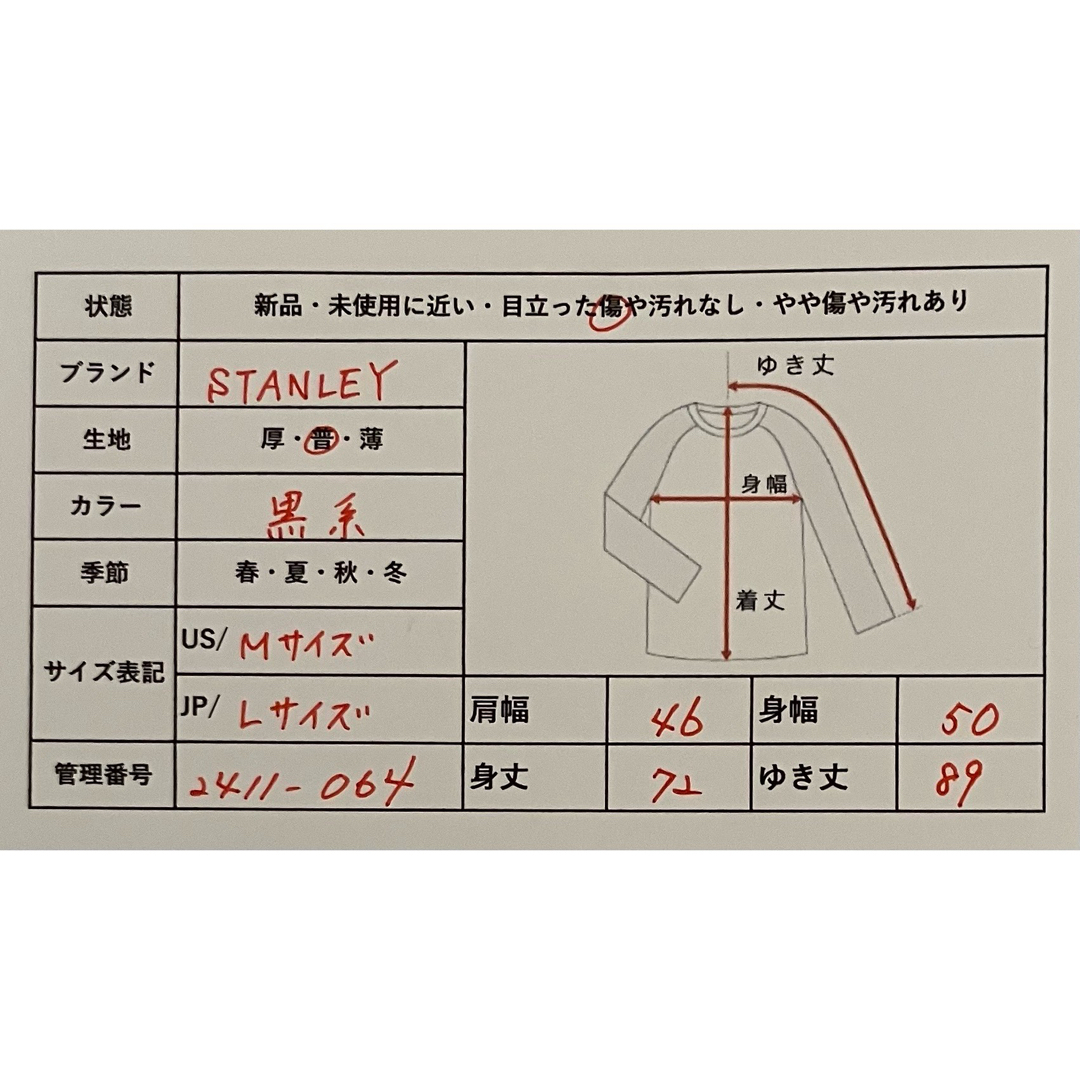 状態 新品・未使用に近い・目立った傷や汚れなし・やや傷や汚れあり
ブランド STANLEY
生地 厚・普・薄
カラー 黒系
季節 春・夏・秋・冬
サイズ表記 US/ Mサイズ
JP/ Lサイズ
管理番号 2411-064
ゆき丈
身幅
着丈
肩幅 46 身幅 50
身丈 72 ゆき丈 89